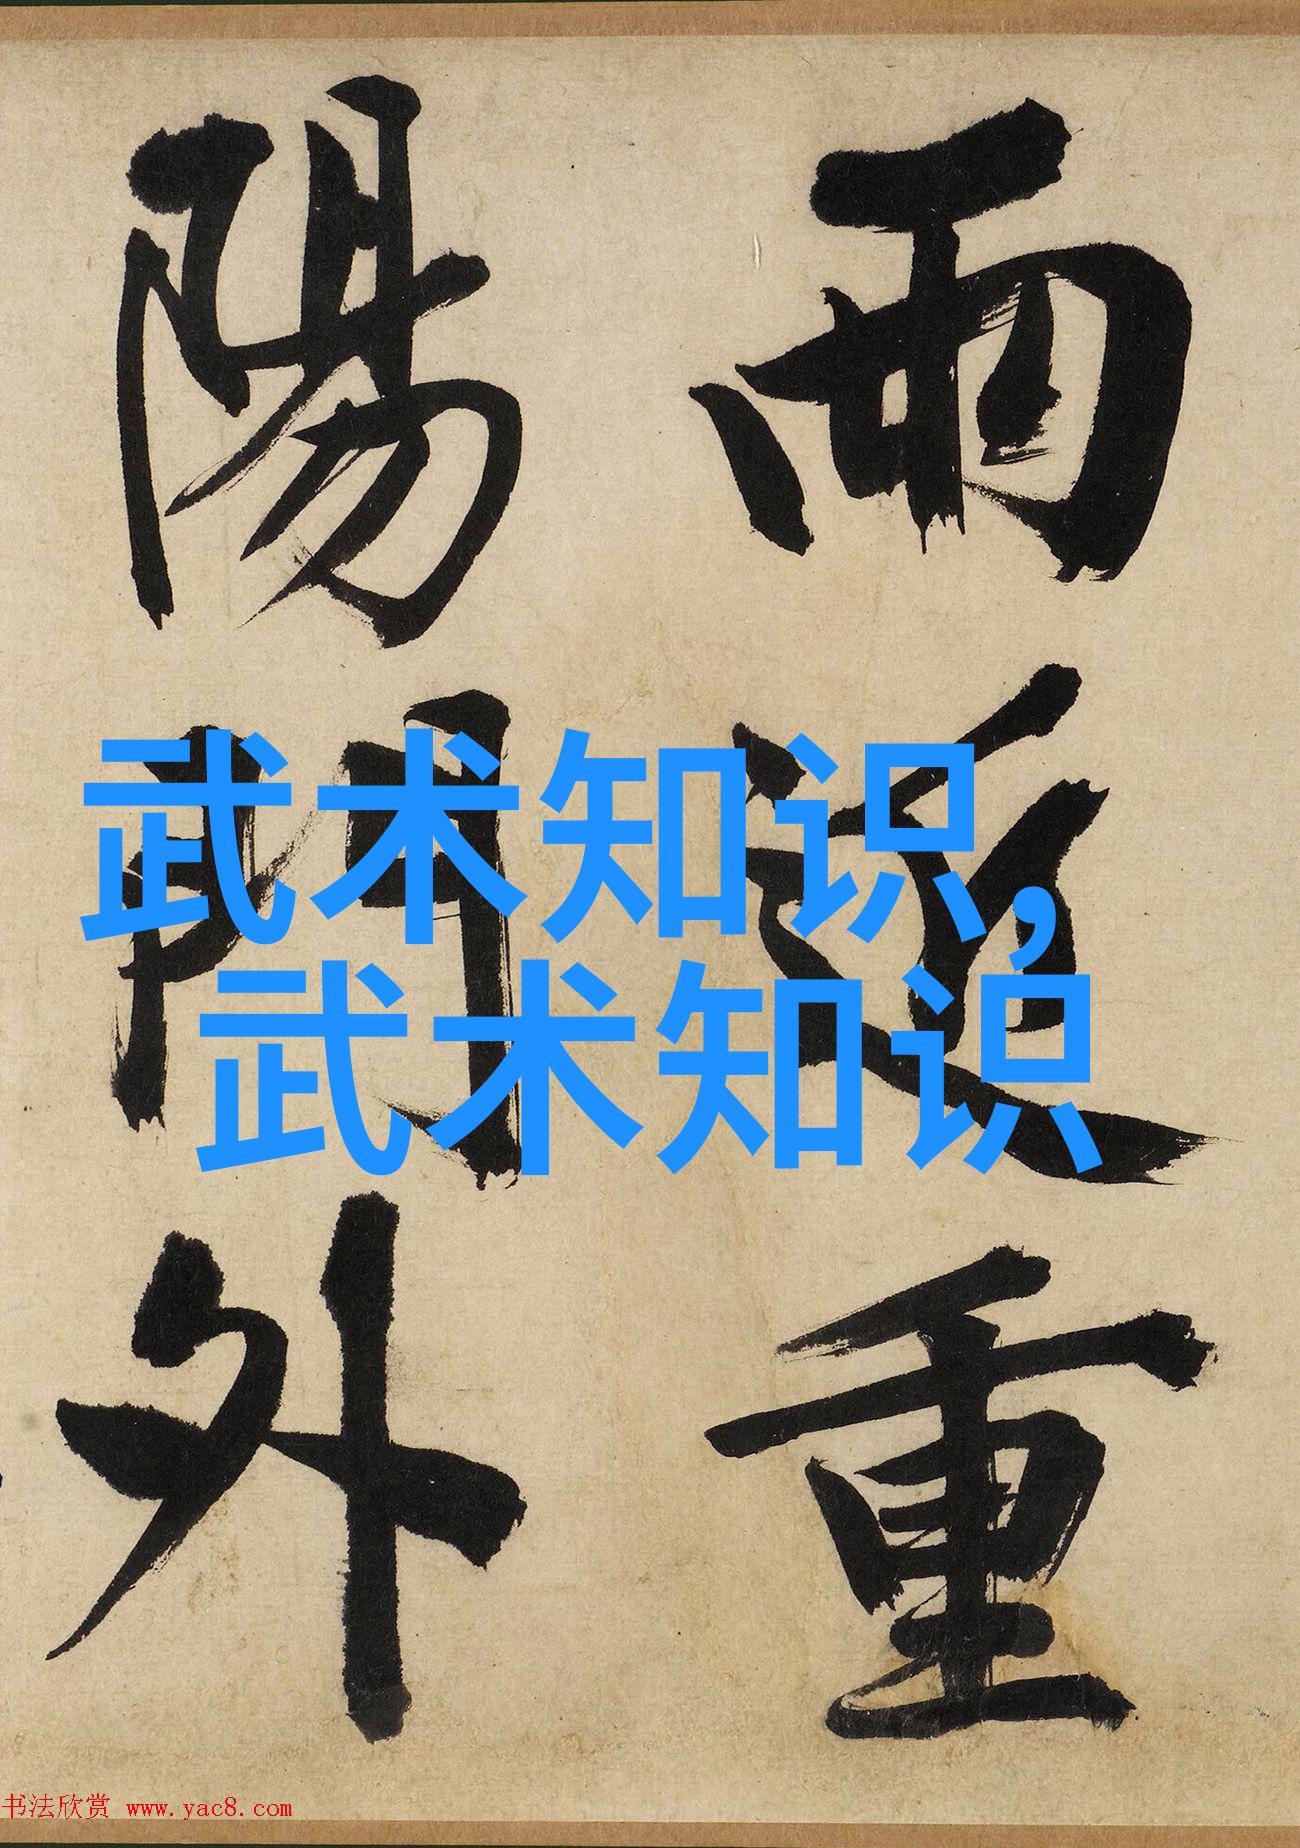 雨近重
陽門外
武术知识,
武术知识
书法欣赏 www.yac8.com